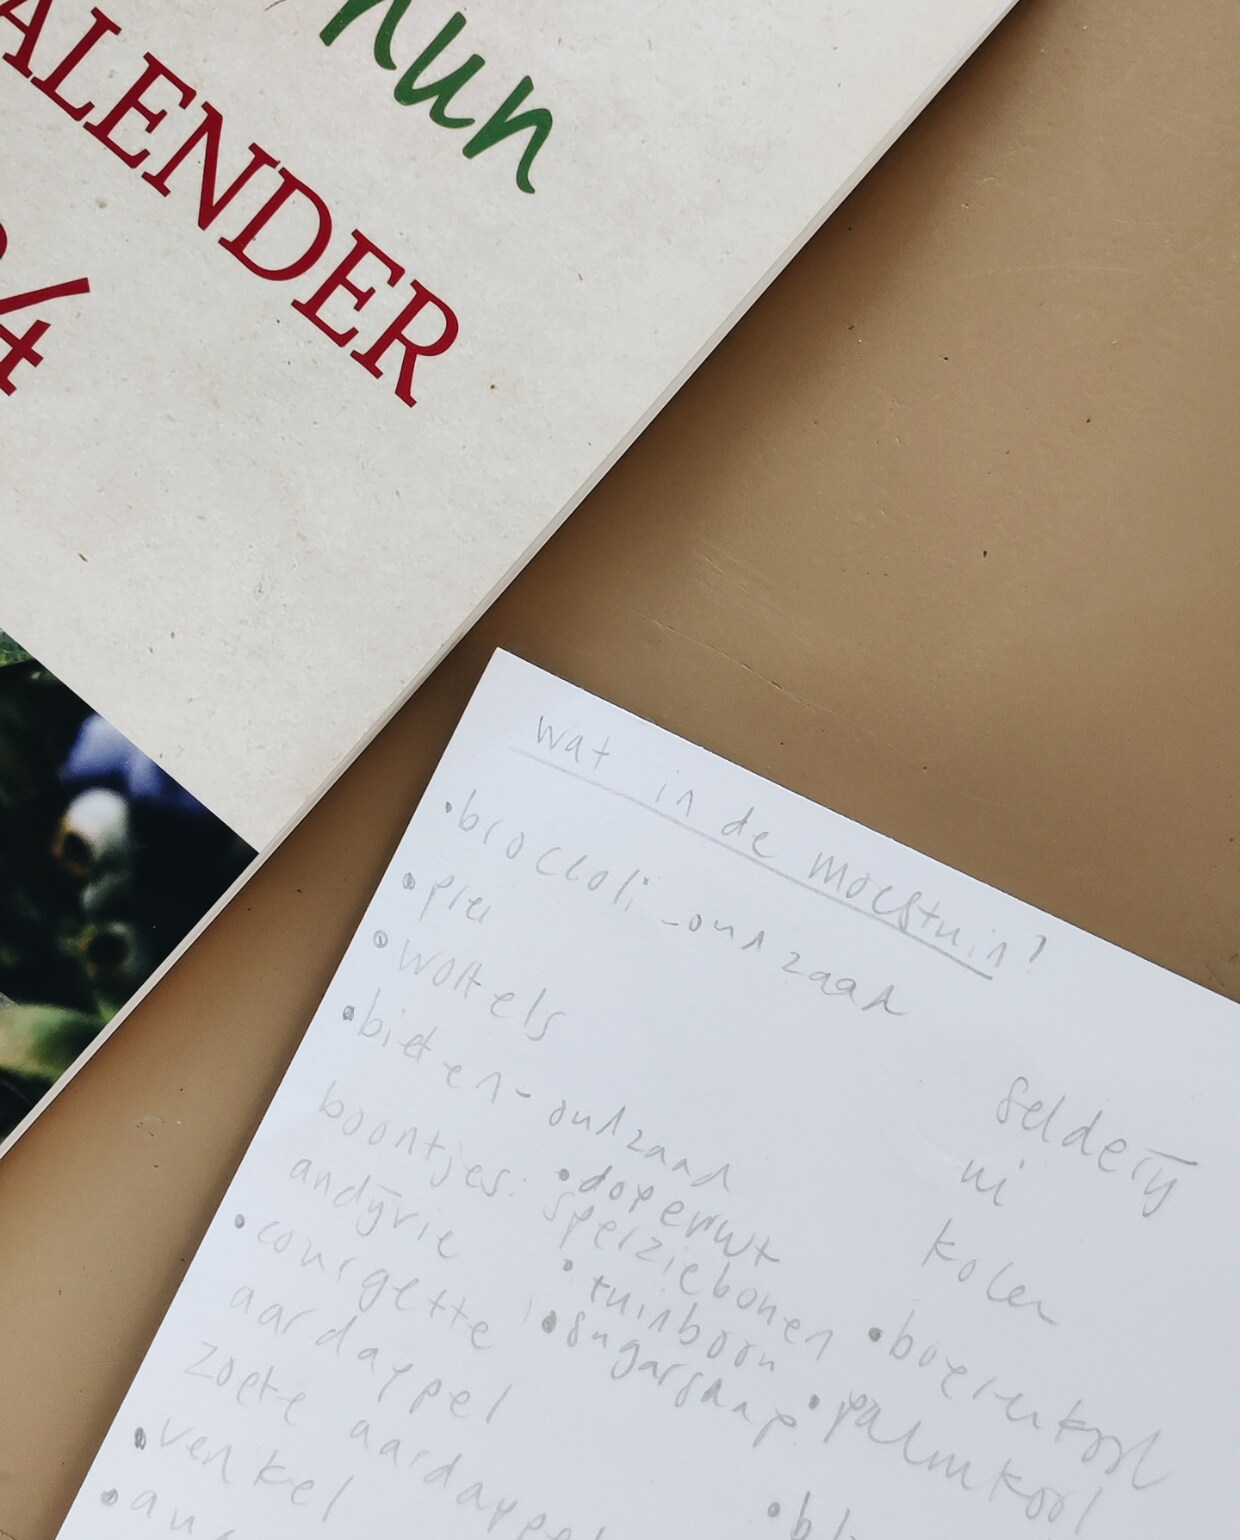 ALENDER
4
wat in de moestuin?
• broccoli - oud zaad
• prei
• wortels
• bieten - oud zaad
boontjes: • doperwt
sperziebonen
• tuinboon
• sugarsnap
andijvie
• courgette
aardappel
zoete aardappel
• venkel
selderij
ui
kolen
• boerenkool
• palmkool